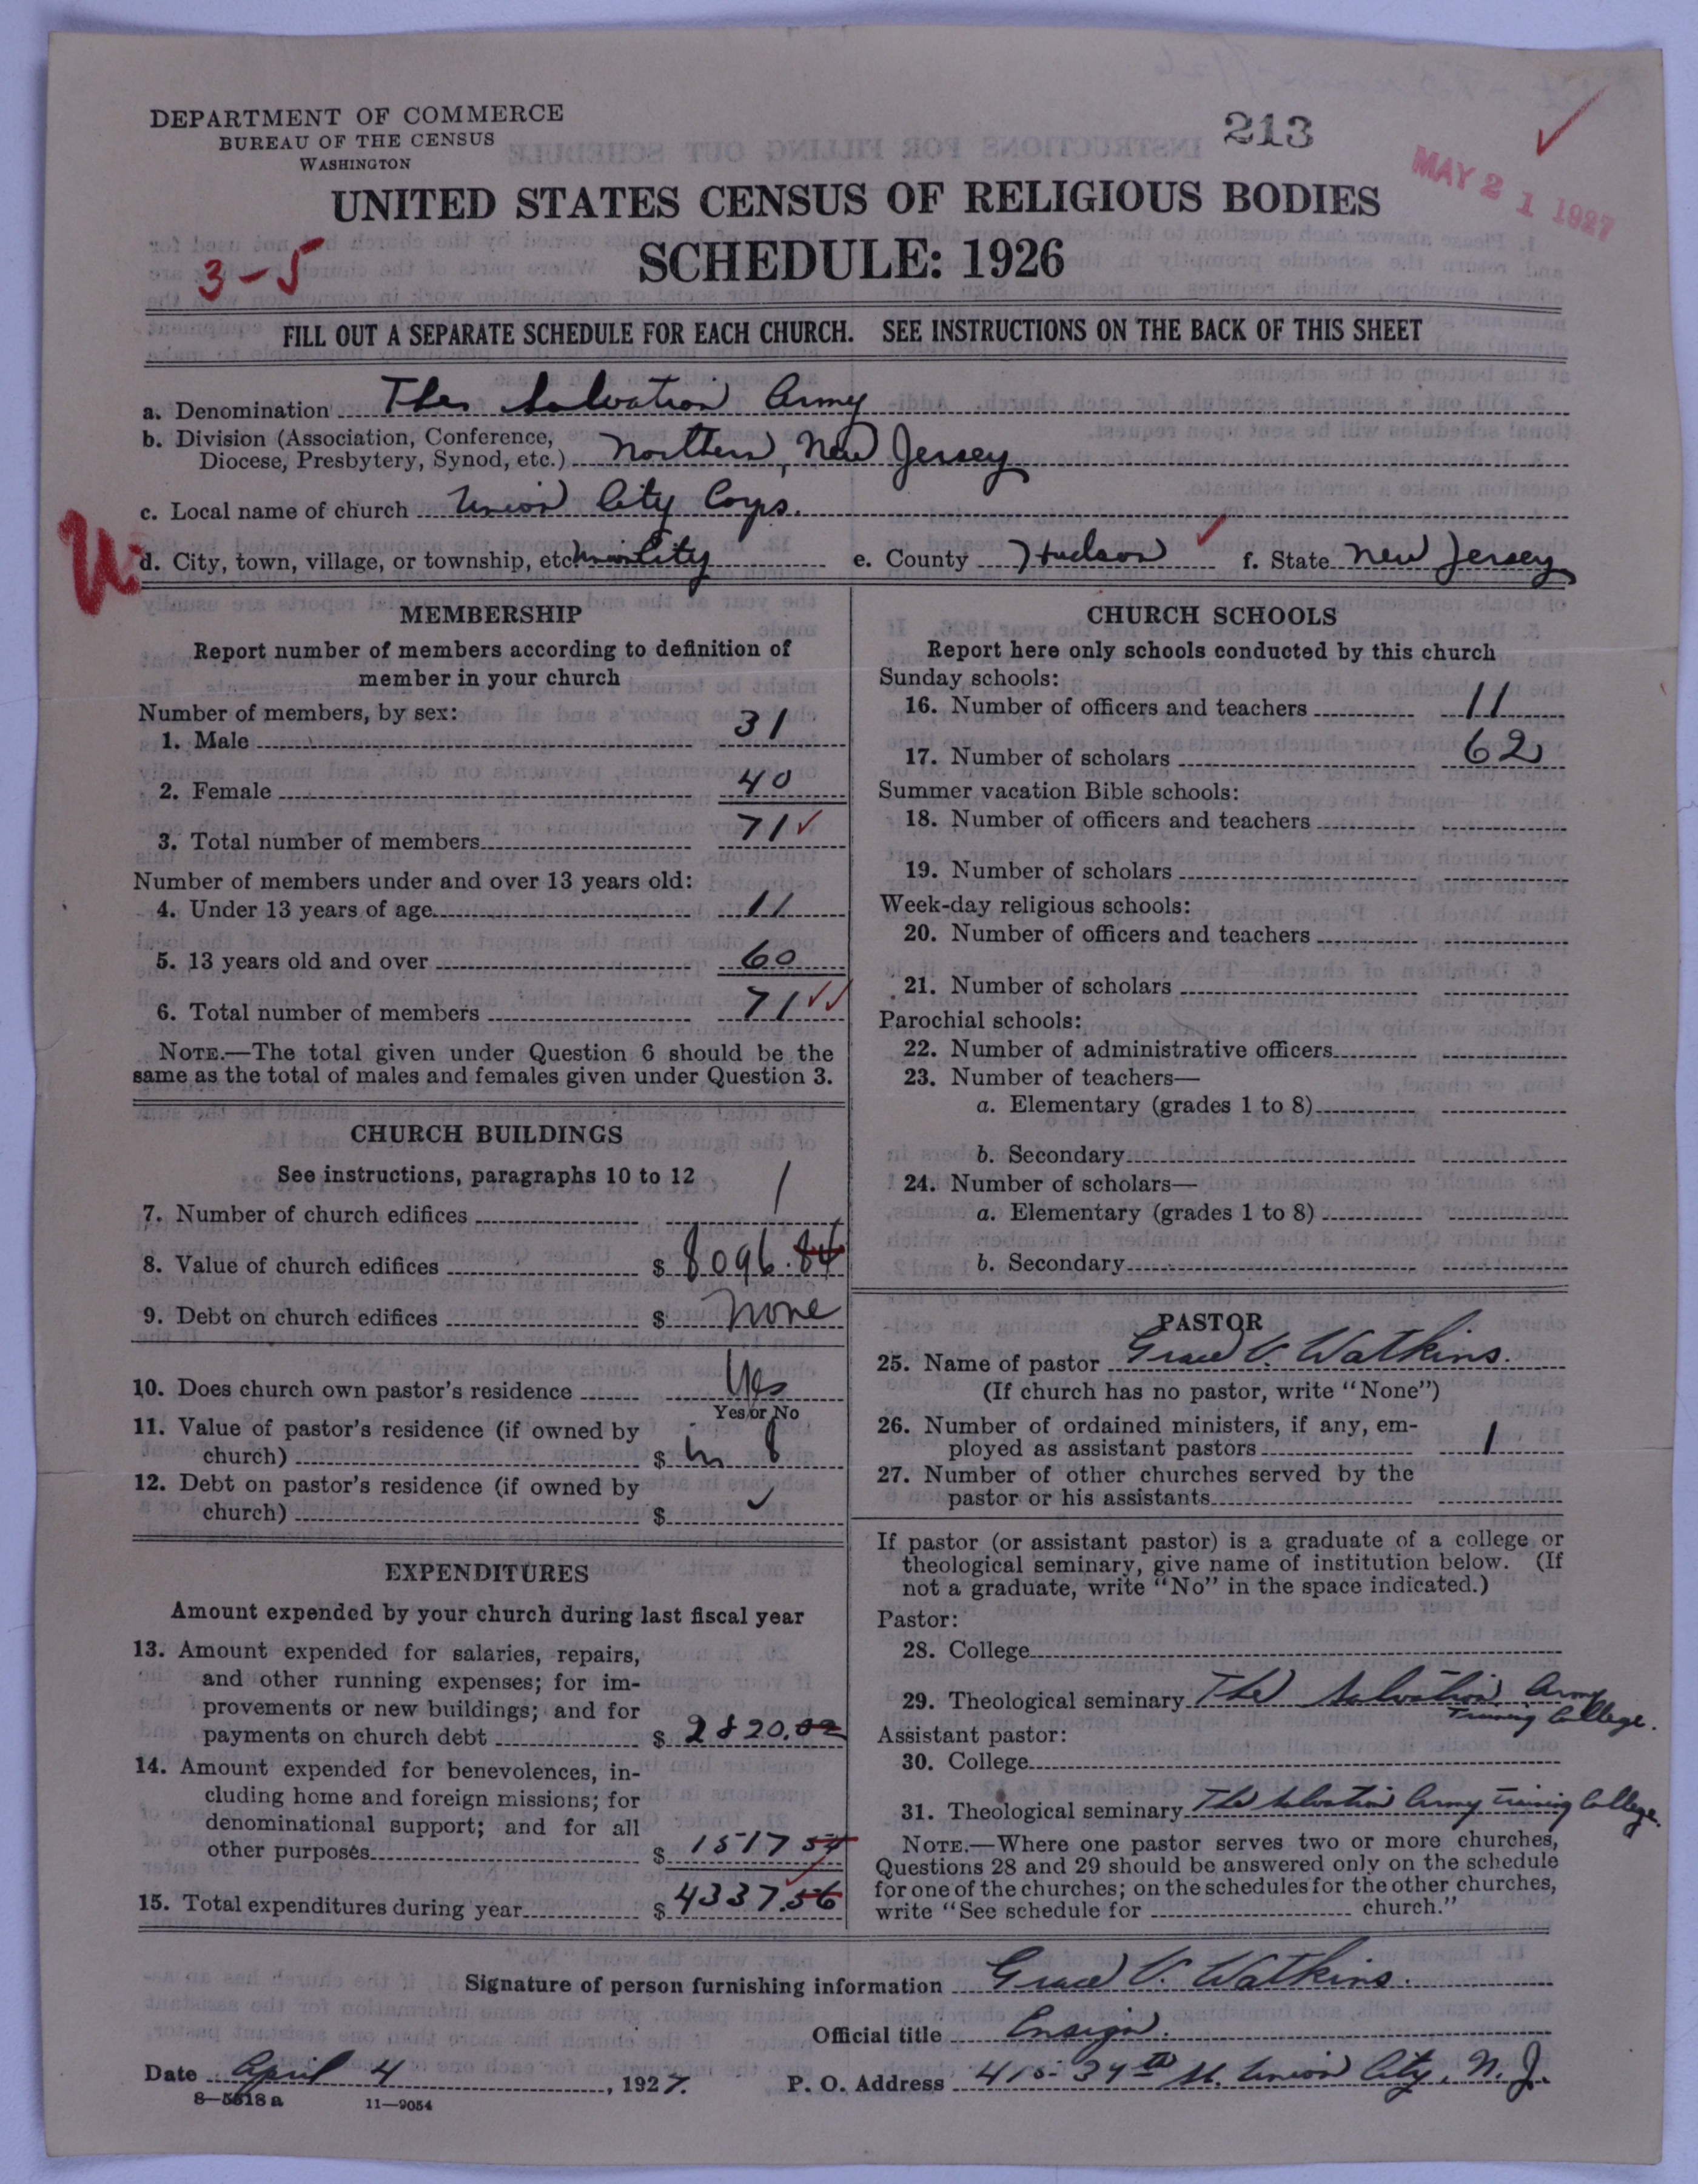 DEPARTMENT OF COMMERCE
BUREAU OF THE CENSUS
WASHINGTON
213
MAY 21 1927
UNITED STATES CENSUS OF RELIGIOUS BODIES
SCHEDULE: 1926
3-5
FILL OUT A SEPARATE SCHEDULE FOR EACH CHURCH. SEE INSTRUCTIONS ON THE BACK OF THIS SHEET
a. Denomination The Salvation Army
b. Division (Association, Conference,
Diocese, Presbytery, Synod, etc.) Northern, New Jersey
c. Local name of church Union City Corps.
U
d. City, town, village, or township, etc. Union City e. County Hudson f. State New Jersey
MEMBERSHIP
Report number of members according to definition of
member in your church
Number of members, by sex:
1. Male 31
2. Female 40
3. Total number of members 71
Number of members under and over 13 years old:
4. Under 13 years of age 11
5. 13 years old and over 60
6. Total number of members 71
NOTE.—The total given under Question 6 should be the
same as the total of males and females given under Question 3.
CHURCH BUILDINGS
See instructions, paragraphs 10 to 12
7. Number of church edifices 1
8. Value of church edifices $ 8096.84
9. Debt on church edifices $ none
10. Does church own pastor's residence Yes
Yes or No
11. Value of pastor's residence (if owned by
church) $ in 8
12. Debt on pastor's residence (if owned by
church) $
EXPENDITURES
Amount expended by your church during last fiscal year
13. Amount expended for salaries, repairs,
and other running expenses; for im-
provements or new buildings; and for
payments on church debt $ 2820.02
14. Amount expended for benevolences, in-
cluding home and foreign missions; for
denominational support; and for all
other purposes $ 1517 54
15. Total expenditures during year $ 4337.56
CHURCH SCHOOLS
Report here only schools conducted by this church
Sunday schools:
16. Number of officers and teachers 11
17. Number of scholars 62
Summer vacation Bible schools:
18. Number of officers and teachers
19. Number of scholars
Week-day religious schools:
20. Number of officers and teachers
21. Number of scholars
Parochial schools:
22. Number of administrative officers
23. Number of teachers—
a. Elementary (grades 1 to 8)
b. Secondary
24. Number of scholars—
a. Elementary (grades 1 to 8)
b. Secondary
PASTOR
25. Name of pastor Grace V. Watkins.
(If church has no pastor, write "None")
26. Number of ordained ministers, if any, em-
ployed as assistant pastors 1
27. Number of other churches served by the
pastor or his assistants
If pastor (or assistant pastor) is a graduate of a college or
theological seminary, give name of institution below. (If
not a graduate, write "No" in the space indicated.)
Pastor:
28. College
29. Theological seminary The Salvation Army
Training College.
Assistant pastor:
30. College
31. Theological seminary The Salvation Army Training College.
NOTE.—Where one pastor serves two or more churches,
Questions 28 and 29 should be answered only on the schedule
for one of the churches; on the schedules for the other churches,
write "See schedule for church."
Signature of person furnishing information Grace V. Watkins.
Official title Ensign.
Date April 4, 1927. P. O. Address 415- 39th St. Union City, N. J.
8—5618 a 11—9054